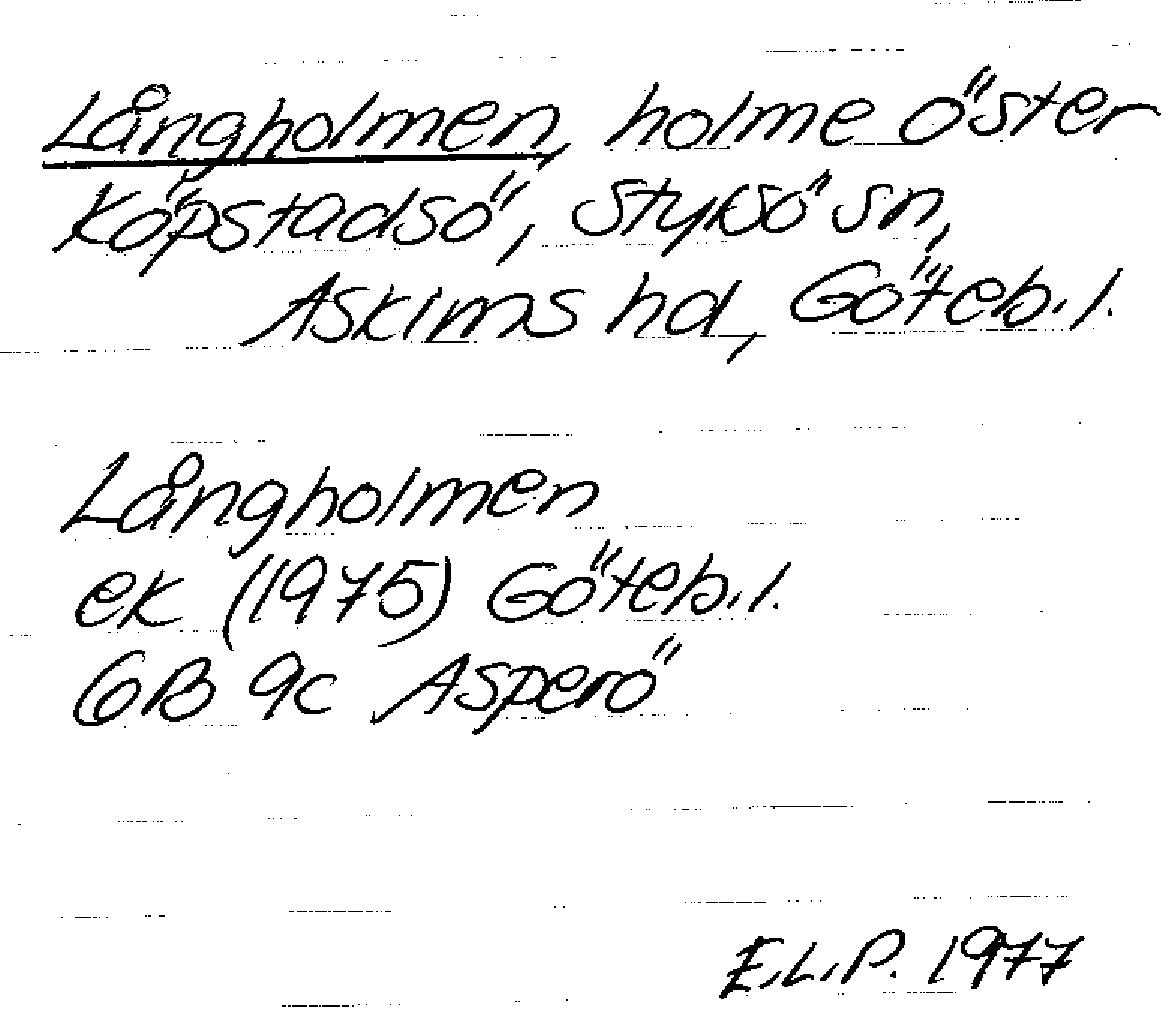 Långholmen, holme öster
Köpstadsö, Styrsö sn,
Askims hd, Göteb.l.
Långholmen
ek (1975) Göteb.l.
6B 9c Asperö
E.L.P. 1977